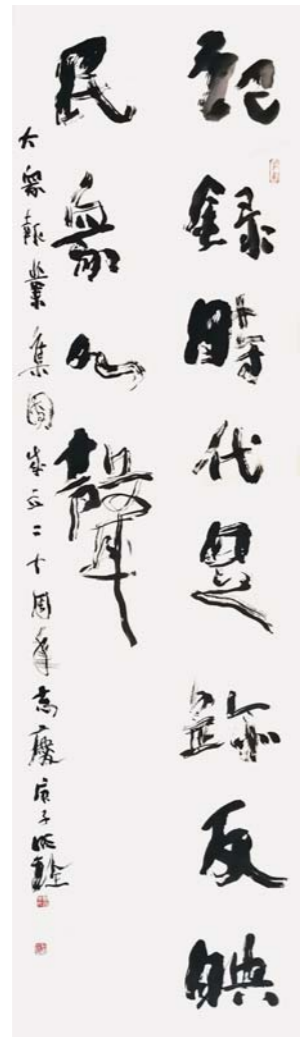 記録時代足跡反映
民衆心聲
大衆報業集團成立二十周年志慶 庚子